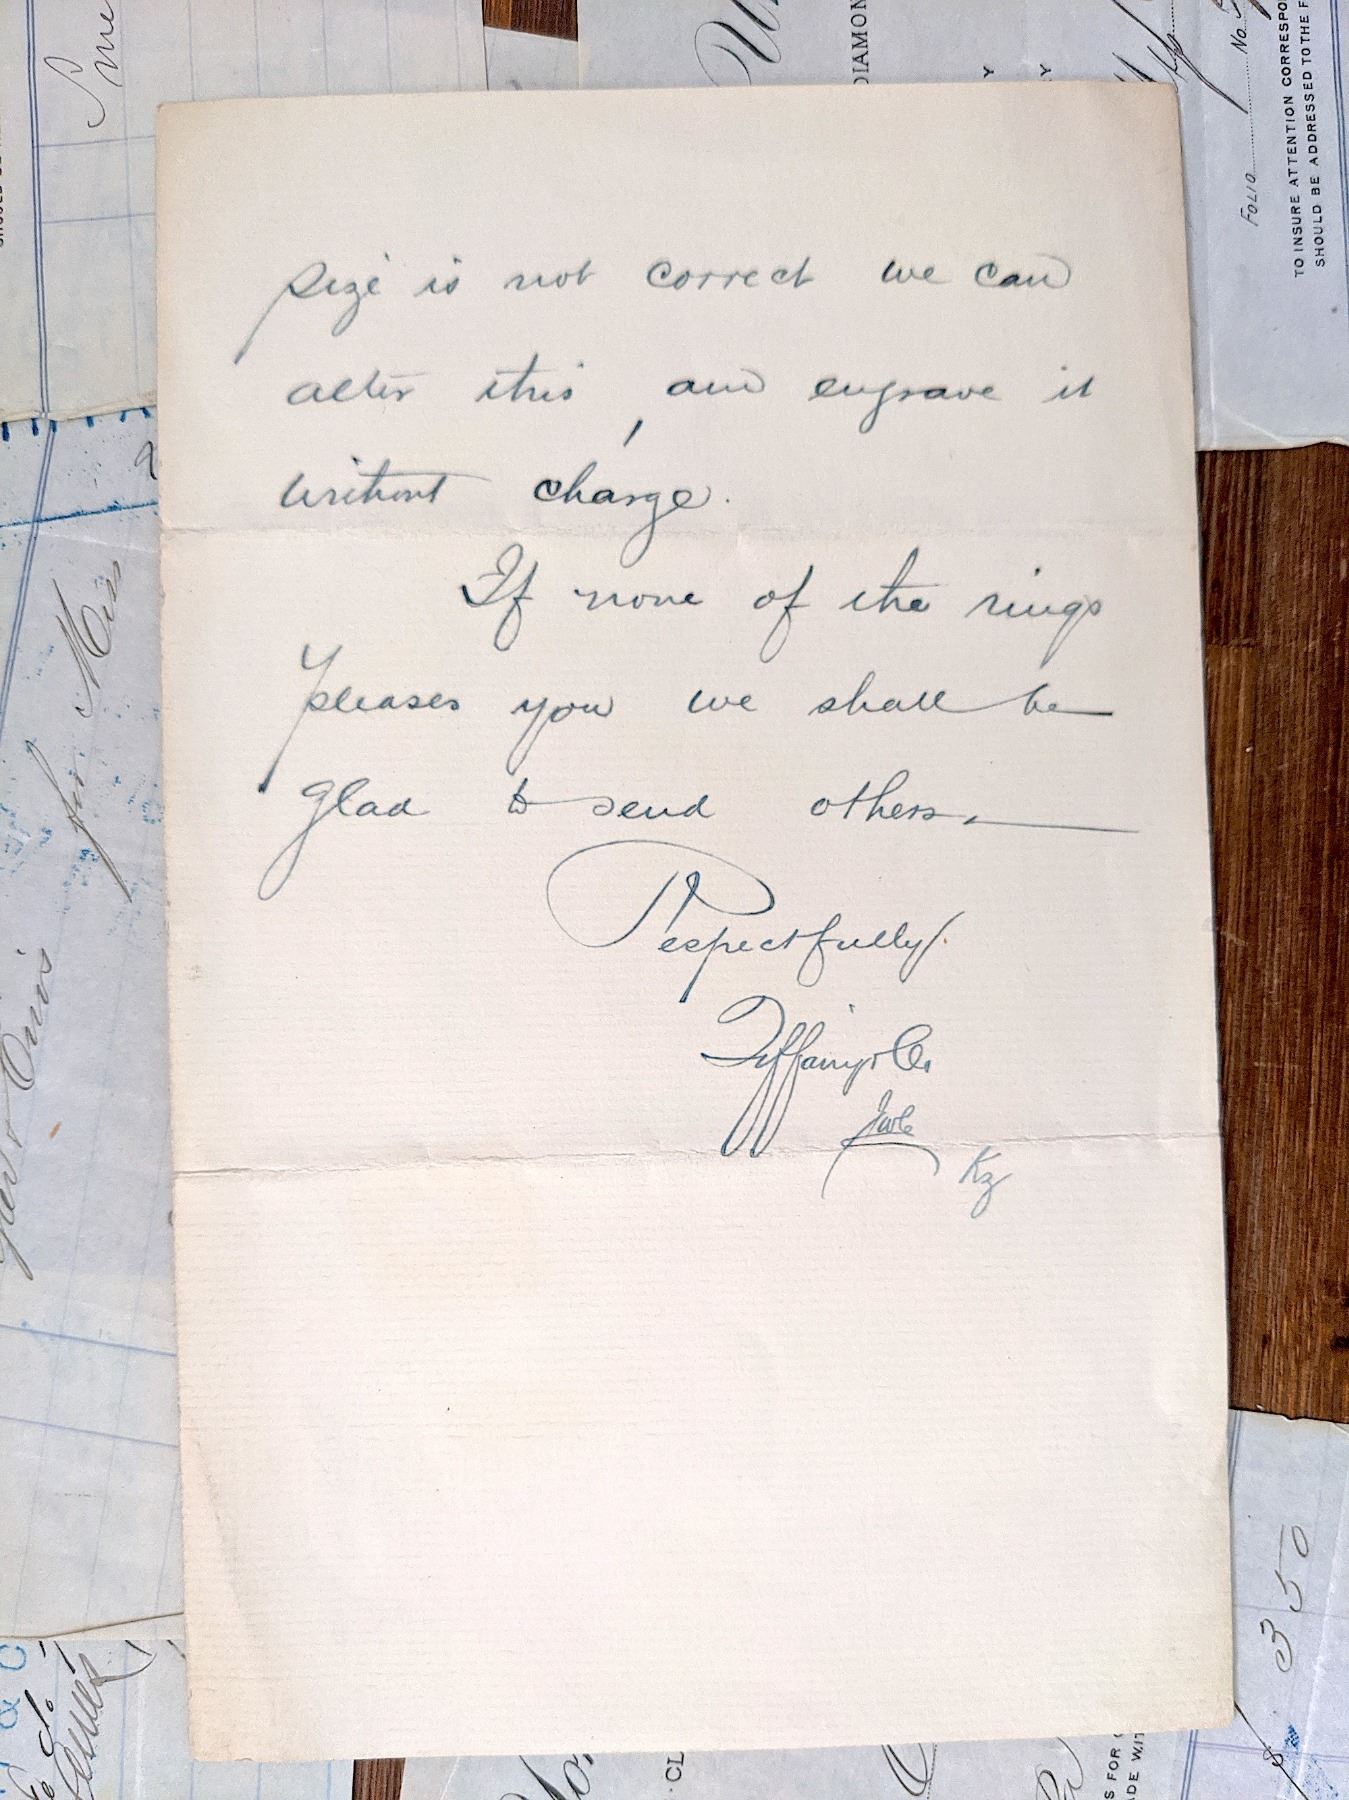 size is not correct we can
alter this, and engrave it
without charge.
If none of the rings
pleases you we shall be
glad to send others.
Respectfully
Tiffany & Co.
Kz
for Miss
DIAMON
Y
Y
FOLIO No.
TO INSURE ATTENTION CORRESPO
SHOULD BE ADDRESSED TO THE F
& C
350
CL
S FOR
ADE WIT